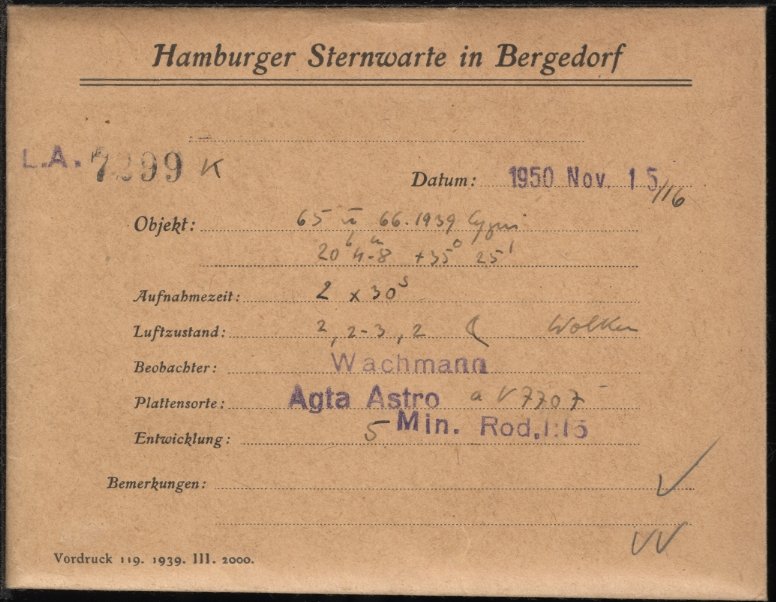 Hamburger Sternwarte in Bergedorf
L.A. 7999 K
Datum: 1950 Nov. 15/16
Objekt: 65 u 66.1939 Cygni
20ʰ 4ᵐ8 +35° 25'
Aufnahmezeit: 2 x 30ˢ
Luftzustand: 2, 2-3, 2 ☾ Wolken
Beobachter: Wachmann
Plattensorte: Agfa Astro a V7707
Entwicklung: 5 Min. Rod. 1:15
Bemerkungen:
Vordruck 119. 1939. III. 2000.